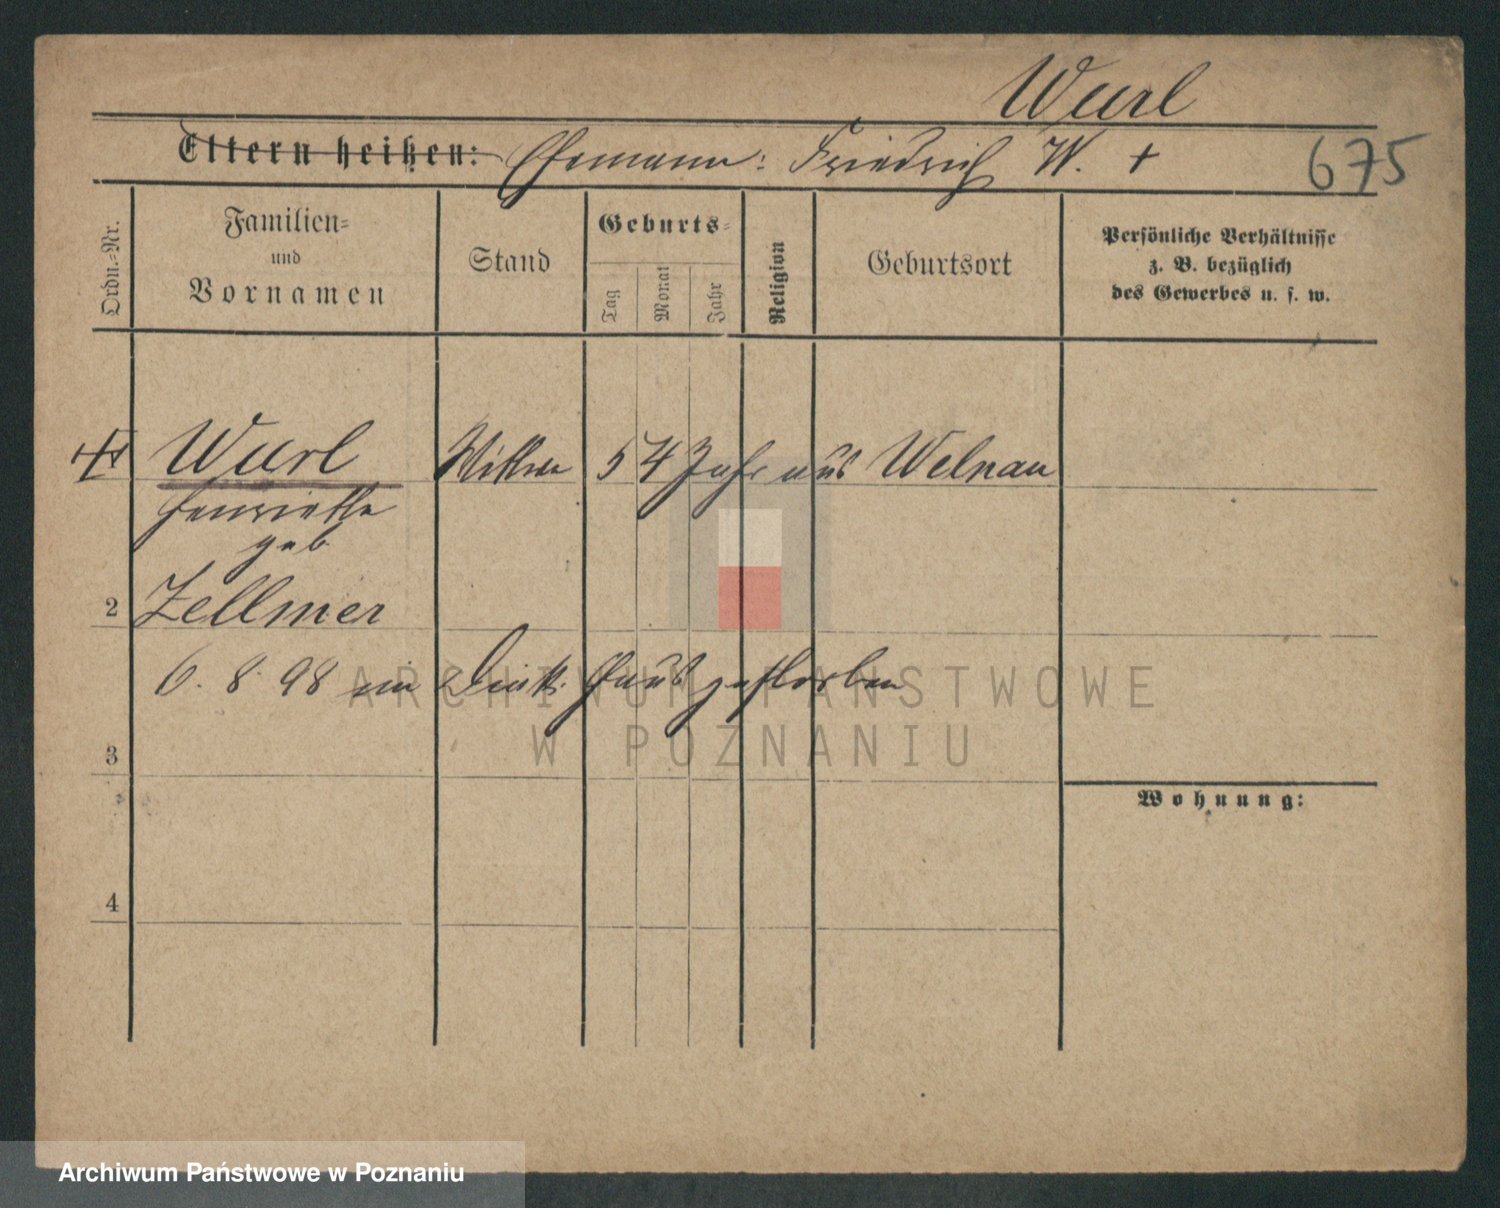 Wurl
Eltern heißen: Ehemann: Friedrich W. +
675
Ordn.-Nr.
Familien-
und
Vornamen
Stand
Geburts-
Tag
Monat
Jahr
Religion
Geburtsort
Persönliche Verhältnisse
z. B. bezüglich
des Gewerbes u. s. w.
Wurl Wittwe 54 Jahr aus Welnau
Henriette
geb
2 Zellmer
6. 8. 98 im Diak. Haus gestorben
3
Wohnung:
4
ARCHIWUM PAŃSTWOWE
W POZNANIU
Archiwum Państwowe w Poznaniu